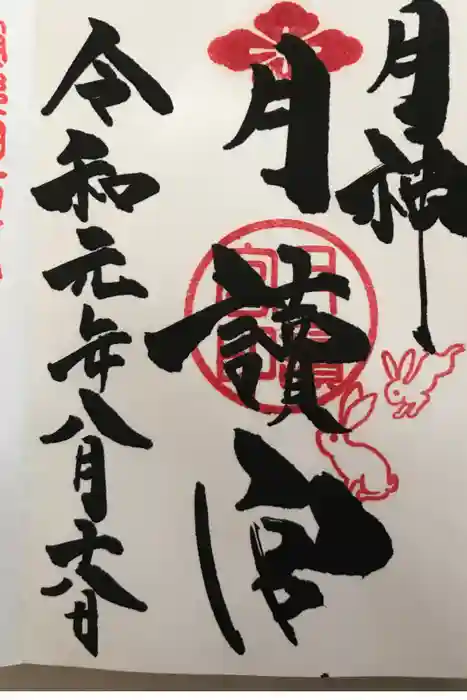 月神
月讀宮
令和元年八月十八日